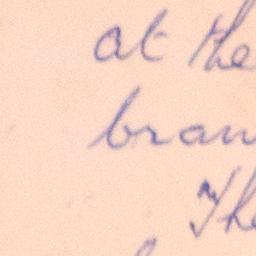 at the
bran
The